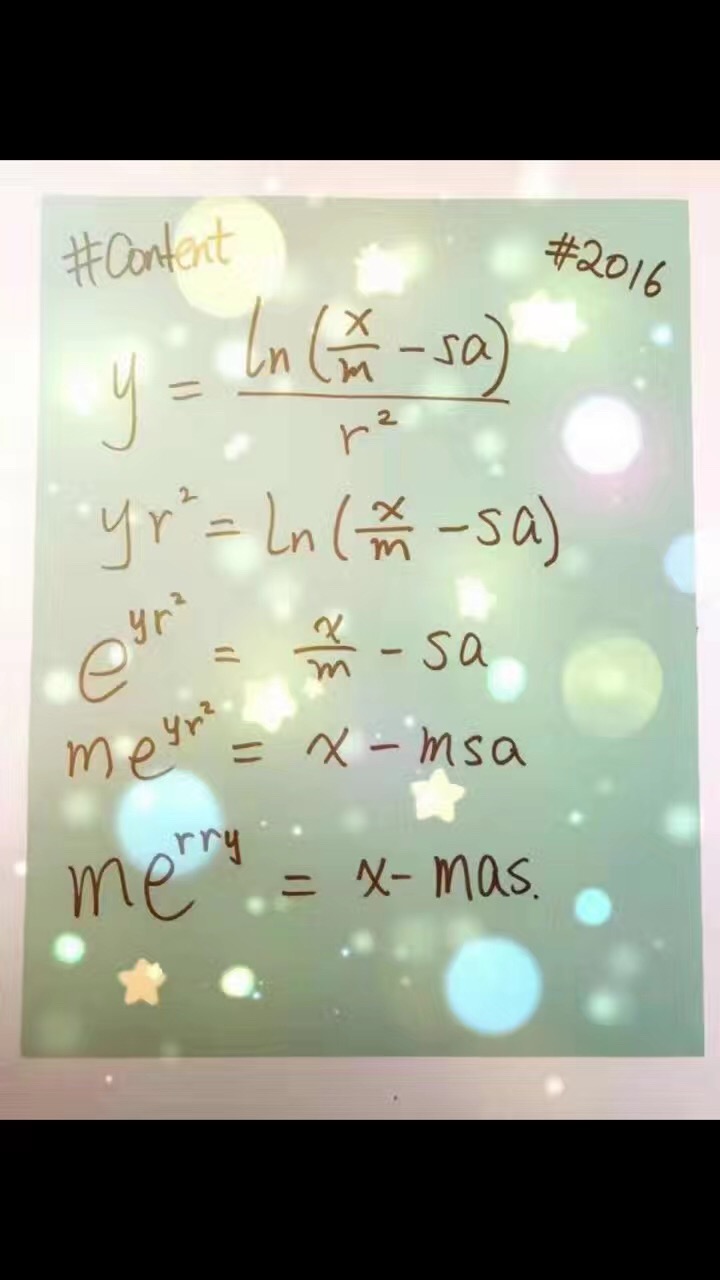 #Content #2016
y = ln(x/m - sa)/r²
yr² = ln(x/m - sa)
e^yr² = x/m - sa
me^yr² = x - msa
me^rry = x - mas.